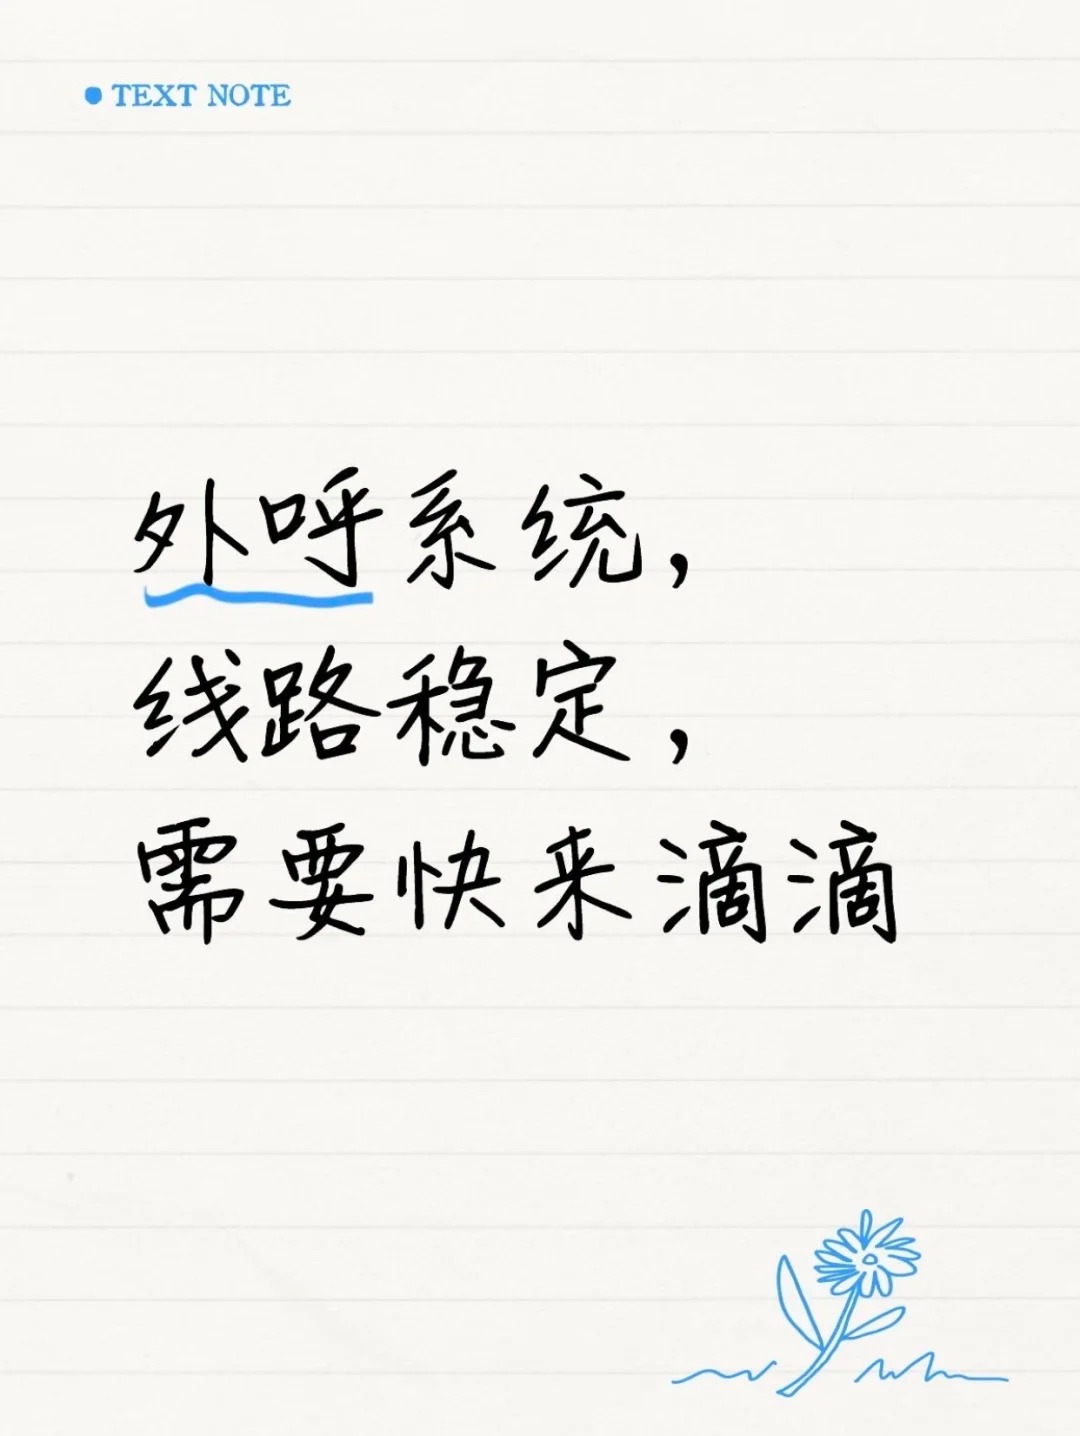 TEXT NOTE
外呼系统，
线路稳定，
需要快来滴滴